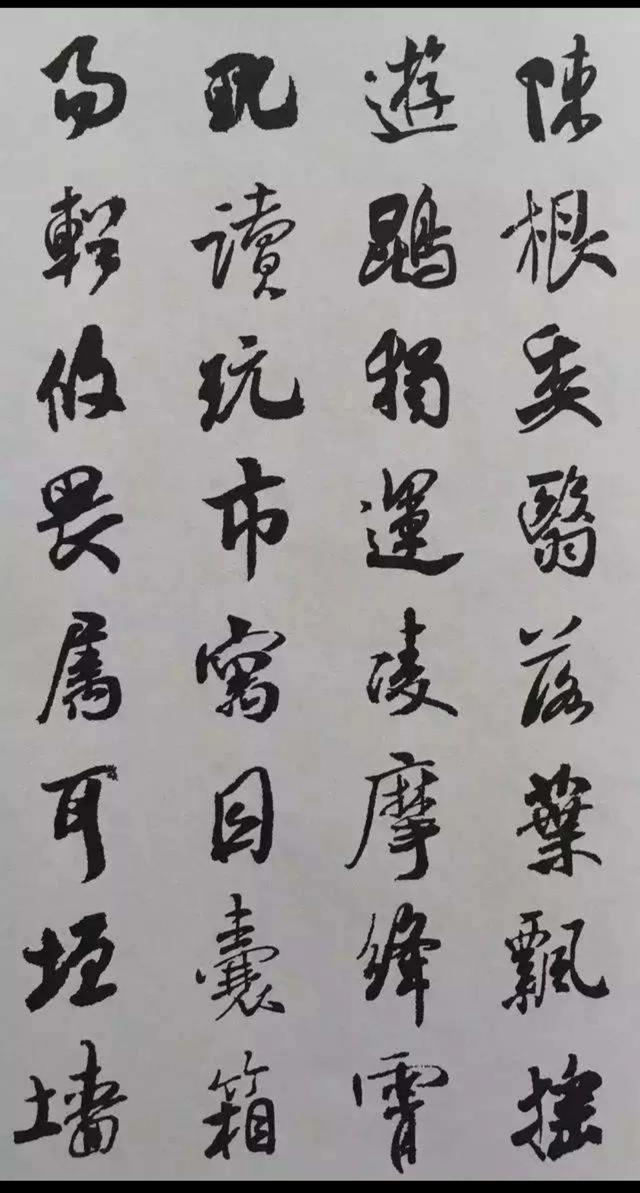 陳根委翳落葉飄搖
遊鵾獨運凌摩絳霄
耽讀玩市寓目囊箱
易輶攸畏属耳垣墻